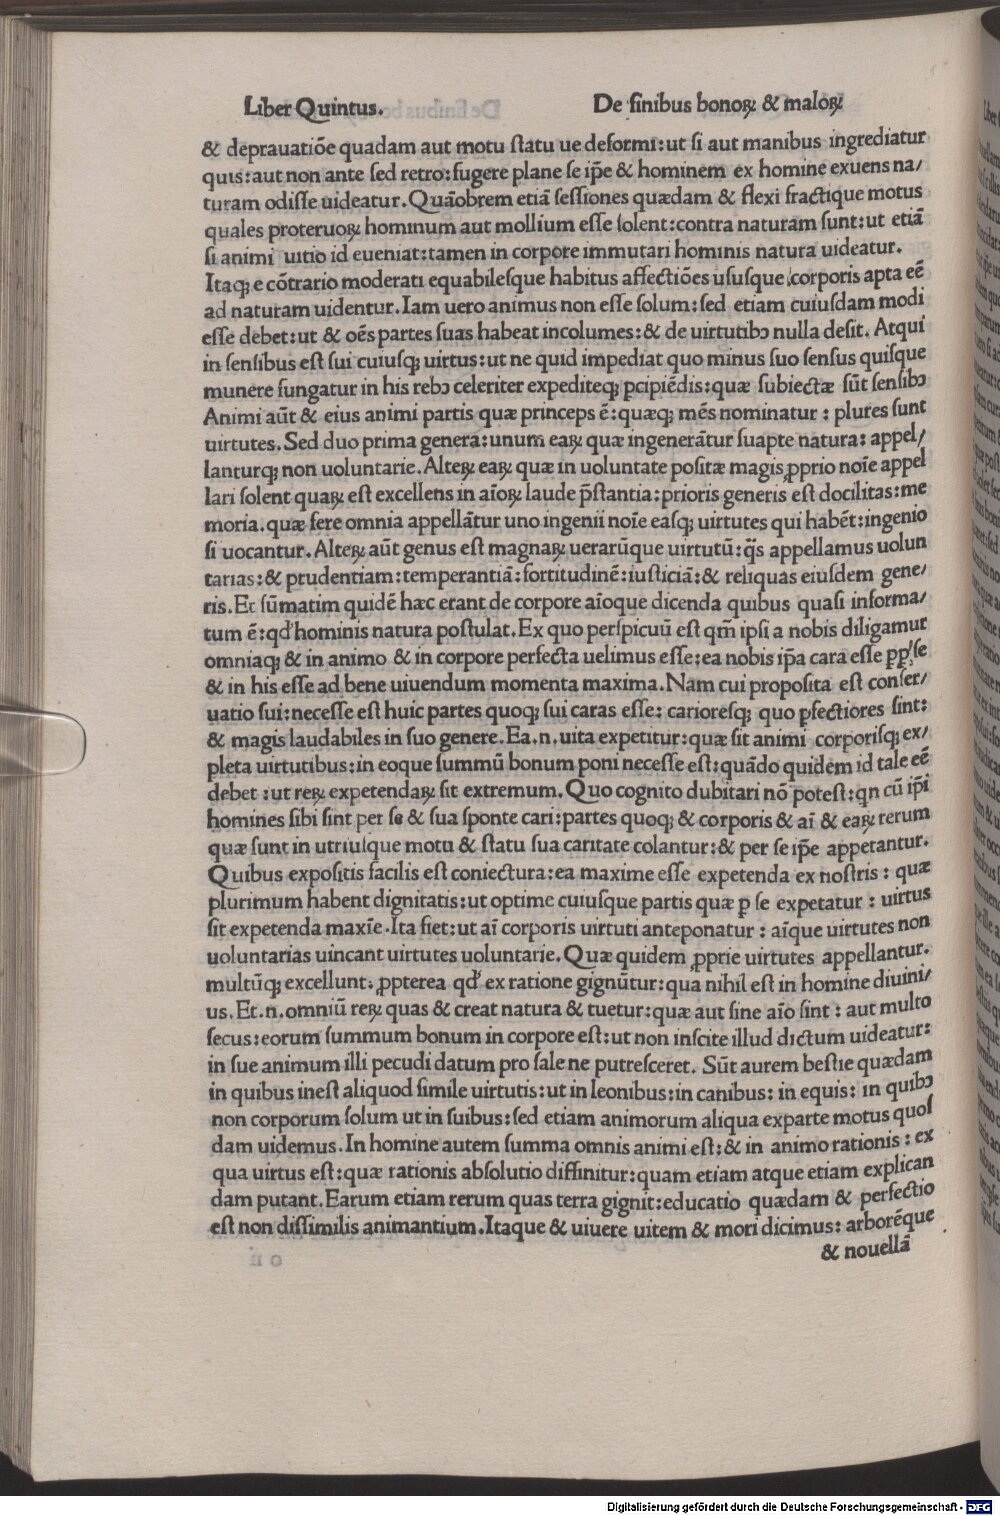 Liber Quintus. De finibus bonoꝝ & maloꝝ
& deprauatiōe quadam aut motu ſtatu ue deformi:ut ſi aut manibus ingrediatur
quis:aut non ante ſed retro:fugere plane ſe ip̄e & hominem ex homine exuens na/
turam odiſſe uideatur.Quāobrem etiā ſeſſiones quædam & flexi fractique motus
quales proteruoꝝ hominum aut mollium eſſe ſolent:contra naturam ſunt:ut etiā
ſi animi uitio id eueniat:tamen in corpore immutari hominis natura uideatur.
Itaqꝫ e cōtrario moderati equabileſque habitus affectiōes uſuſque corporis apta eē
ad naturam uidentur.Iam uero animus non eſſe ſolum:ſed etiam cuiuſdam modi
eſſe debet:ut & oēs partes ſuas habeat incolumes:& de uirtutibꝰ nulla deſit. Atqui
in ſenſibus eſt ſui cuiuſqꝫ uirtus:ut ne quid impediat quo minus ſuo ſenſus quiſque
munere fungatur in his rebꝰ celeriter expediteqꝫ ꝑcipiēdis:quæ ſubiectæ ſūt ſenſibꝰ
Animi aūt & eius animi partis quæ princeps ē:quæqꝫ mēs nominatur : plures ſunt
uirtutes.Sed duo prima genera:unum eaꝝ quæ ingenerātur ſuapte natura: appel/
lanturqꝫ non uoluntarie.Alteꝝ eaꝝ quæ in uoluntate poſitæ magis ꝓprio noīe appel
lari ſolent quaꝝ eſt excellens in aīoꝝ laude p̄ſtantia:prioris generis eſt docilitas:me
moria.quæ fere omnia appellātur uno ingenii noīe eaſqꝫ uirtutes qui habēt:ingenio
ſi uocantur.Alteꝝ aūt genus eſt magnaꝝ uerarūque uirtutū:q̄s appellamus uolun
tarias:& prudentiam:temperantiā:fortitudinē:iuſticiā:& reliquas eiuſdem gene/
ris.Et ſūmatim quidē hæc erant de corpore aīoque dicenda quibus quaſi informa/
tum ē:qđ hominis natura poſtulat.Ex quo perſpicuū eſt qm̄ ipſi a nobis diligamur
omniaqꝫ & in animo & in corpore perfecta uelimus eſſe:ea nobis ip̄a cara eſſe ꝓpꝰ ſe
& in his eſſe ad bene uiuendum momenta maxima.Nam cui propoſita eſt conſer/
uatio ſui:neceſſe eſt huic partes quoqꝫ ſui caras eſſe: carioreſqꝫ quo ꝑfectiores ſint:
& magis laudabiles in ſuo genere.Ea.n.uita expetitur:quæ ſit animi corporiſqꝫ ex/
pleta uirtutibus:in eoque ſummū bonum poni neceſſe eſt:quādo quidem id tale eē
debet :ut reꝝ expetendaꝝ ſit extremum.Quo cognito dubitari nō poteſt:qn cū ip̄i
homines ſibi ſint per ſe & ſua ſponte cari:partes quoqꝫ & corporis & aī & eaꝝ rerum
quæ ſunt in utriuſque motu & ſtatu ſua caritate colantur:& per ſe ip̄e appetantur.
Quibus expoſitis facilis eſt coniectura:ea maxime eſſe expetenda ex noſtris : quæ
plurimum habent dignitatis:ut optime cuiuſque partis quæ ꝑ ſe expetatur : uirtus
ſit expetenda maxīe.Ita fiet:ut aī corporis uirtuti anteponatur : aīque uirtutes non
uoluntarias uincant uirtutes uoluntarie.Quæ quidem ꝓprie uirtutes appellantur.
multūqꝫ excellunt. ꝓpterea qđ ex ratione gignūtur:qua nihil eſt in homine diuini/
us.Et.n.omniū reꝝ quas & creat natura & tuetur:quæ aut ſine aīo ſint : aut multo
ſecus:eorum ſummum bonum in corpore eſt:ut non inſcite illud dictum uideatur:
in ſue animum illi pecudi datum pro ſale ne putreſceret. Sūt aurem beſtie quædam
in quibus ineſt aliquod ſimile uirtutis:ut in leonibus:in canibus: in equis: in quibꝰ
non corporum ſolum ut in ſuibus:ſed etiam animorum aliqua exparte motus quoſ
dam uidemus.In homine autem ſumma omnis animi eſt:& in animo rationis : ex
qua uirtus eſt:quæ rationis abſolutio diffinitur:quam etiam atque etiam explican
dam putant.Earum etiam rerum quas terra gignit:educatio quædam & perfectio
eſt non diſſimilis animantium.Itaque & uiuere uitem & mori dicimus: arborēque
& nouellā
Digitalisierung gefördert durch die Deutsche Forschungsgemeinschaft - DFG